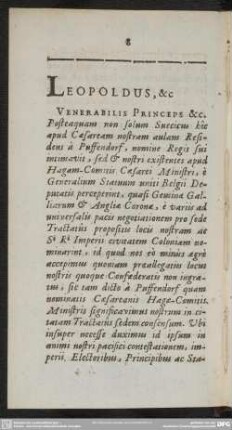 8
LEOPOLDUS, &c
VENERABILIS PRINCEPS &c.
Posteaquam non solum Suecicus hic
apud Cæsaream nostram aulam Resi-
dens à Puffendorf, nomine Regis sui
intimavit, sed & nostri existentes apud
Hagam-Comitis Cæsarei Ministri, è
Generalium Statuum uniti Belgii De-
putatis perceperint, quasi Geminæ Gal-
liarum & Angliæ Coronæ, è variis ad
universalis pacis negotiationem pro sede
Tractatûs propositis locis nostram ac
Sᵃ Rⁱ Imperii civitatem Coloniam no-
minarint, id quod nos eò minus ægrè
accepimus quoniam præallegatus locus
nostris quoque Confœderatis non ingra-
tus, sic tam dicto à Puffendorf quam
nominatis Cæsareanis Hagæ-Comitis,
Ministris significavimus nostrum in ci-
tatam Tractatûs sedem consensum. Ubi
insuper necesse duximus id ipsum in
animi nostri pacifici contestationem, im-
perii, Electoribus, Principibus ac Sta-